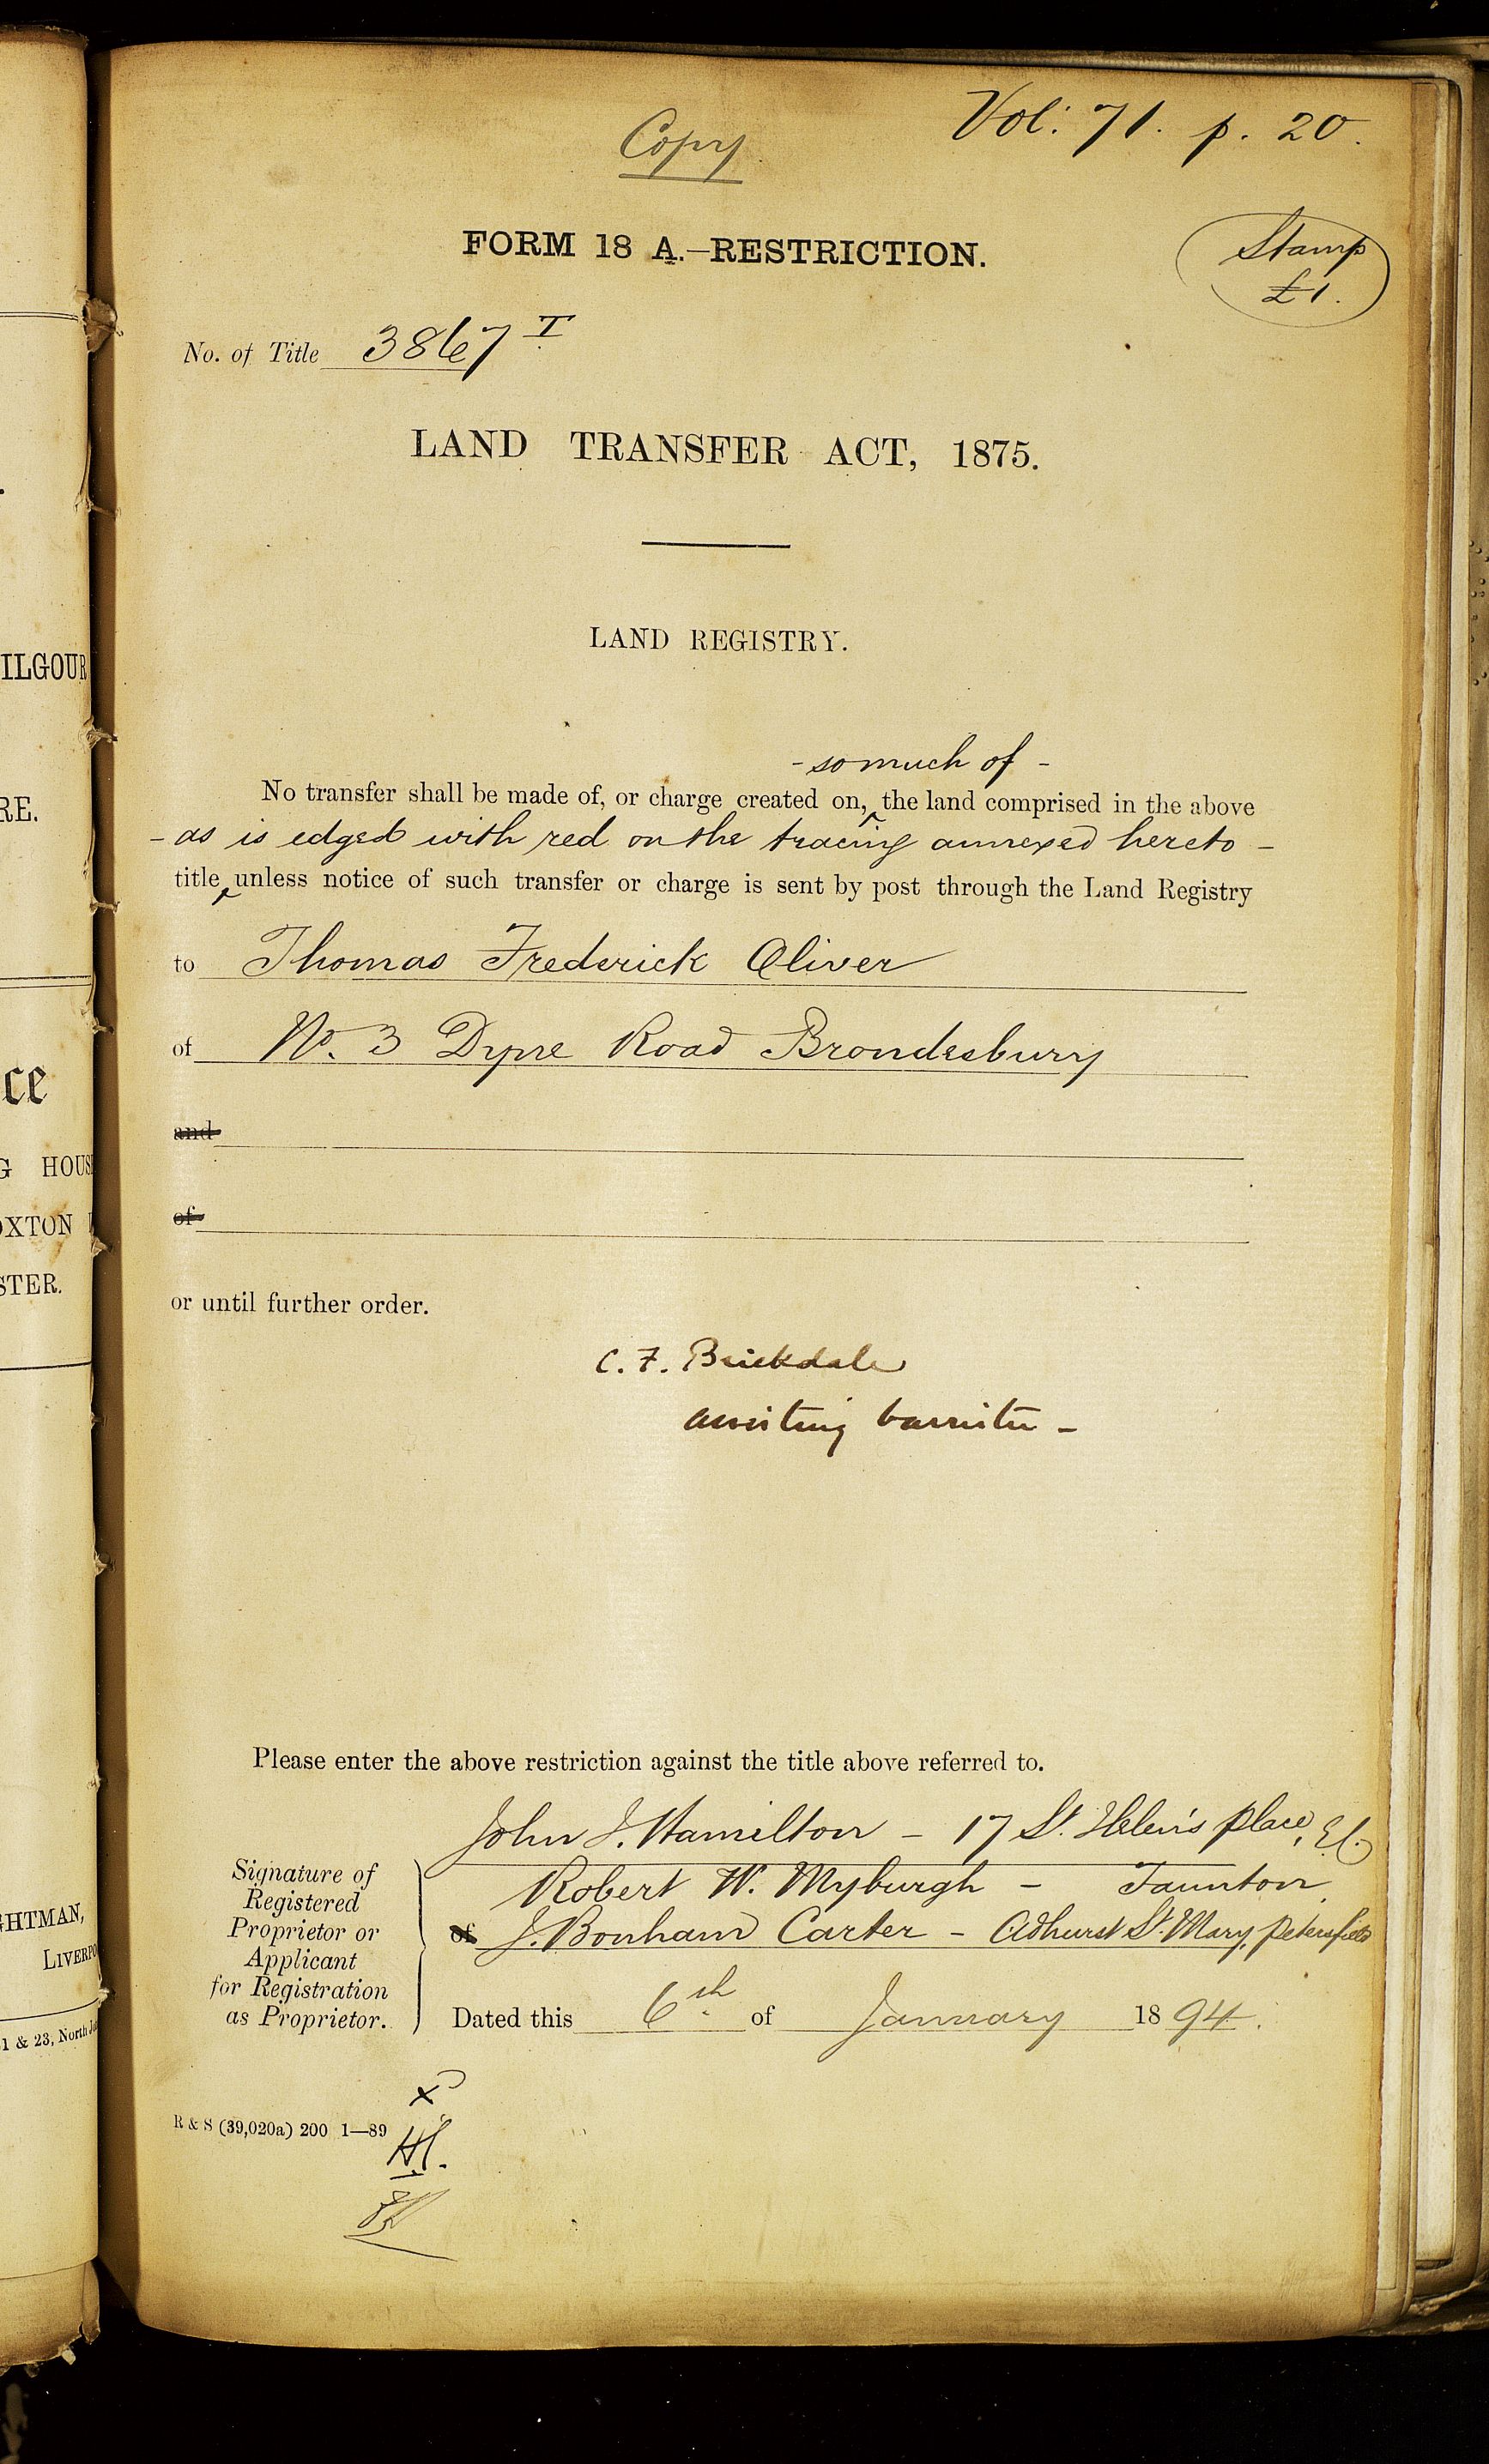 Copy
Vol: 71. p. 20.
FORM 18 A.—RESTRICTION.
Stamp
£1.
No. of Title 3867 I
LAND TRANSFER ACT, 1875.
LAND REGISTRY.
- so much of -
No transfer shall be made of, or charge created on, the land comprised in the above
- as is edged with red on the tracing annexed hereto -
title unless notice of such transfer or charge is sent by post through the Land Registry
to Thomas Frederick Oliver
of No. 3 Dyne Road Brondesbury
and
of
or until further order.
C. F. Brickdale
assisting barrister -
Please enter the above restriction against the title above referred to.
John J. Hamilton - 17 St. Helen's place, E.C.
Robert W. Myburgh - Taunton.
of J. Bonham Carter - Adhurst St. Mary, Petersfield
Signature of
Registered
Proprietor or
Applicant
for Registration
as Proprietor.
Dated this 6th of January 1894.
R & S (39,020a) 200 1—89
ILGOUR
RE.
ce
G HOUS
OXTON
STER.
GHTMAN,
LIVERPO
1 & 23, North Jo